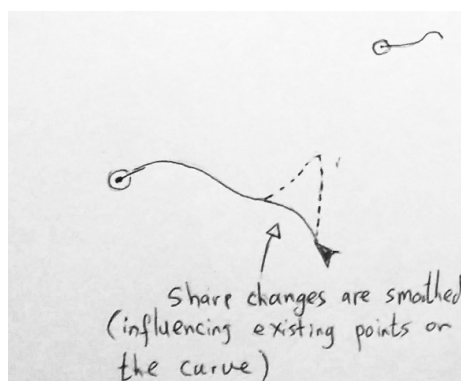 Sharp changes are smoothed
(influencing existing points on
the curve)